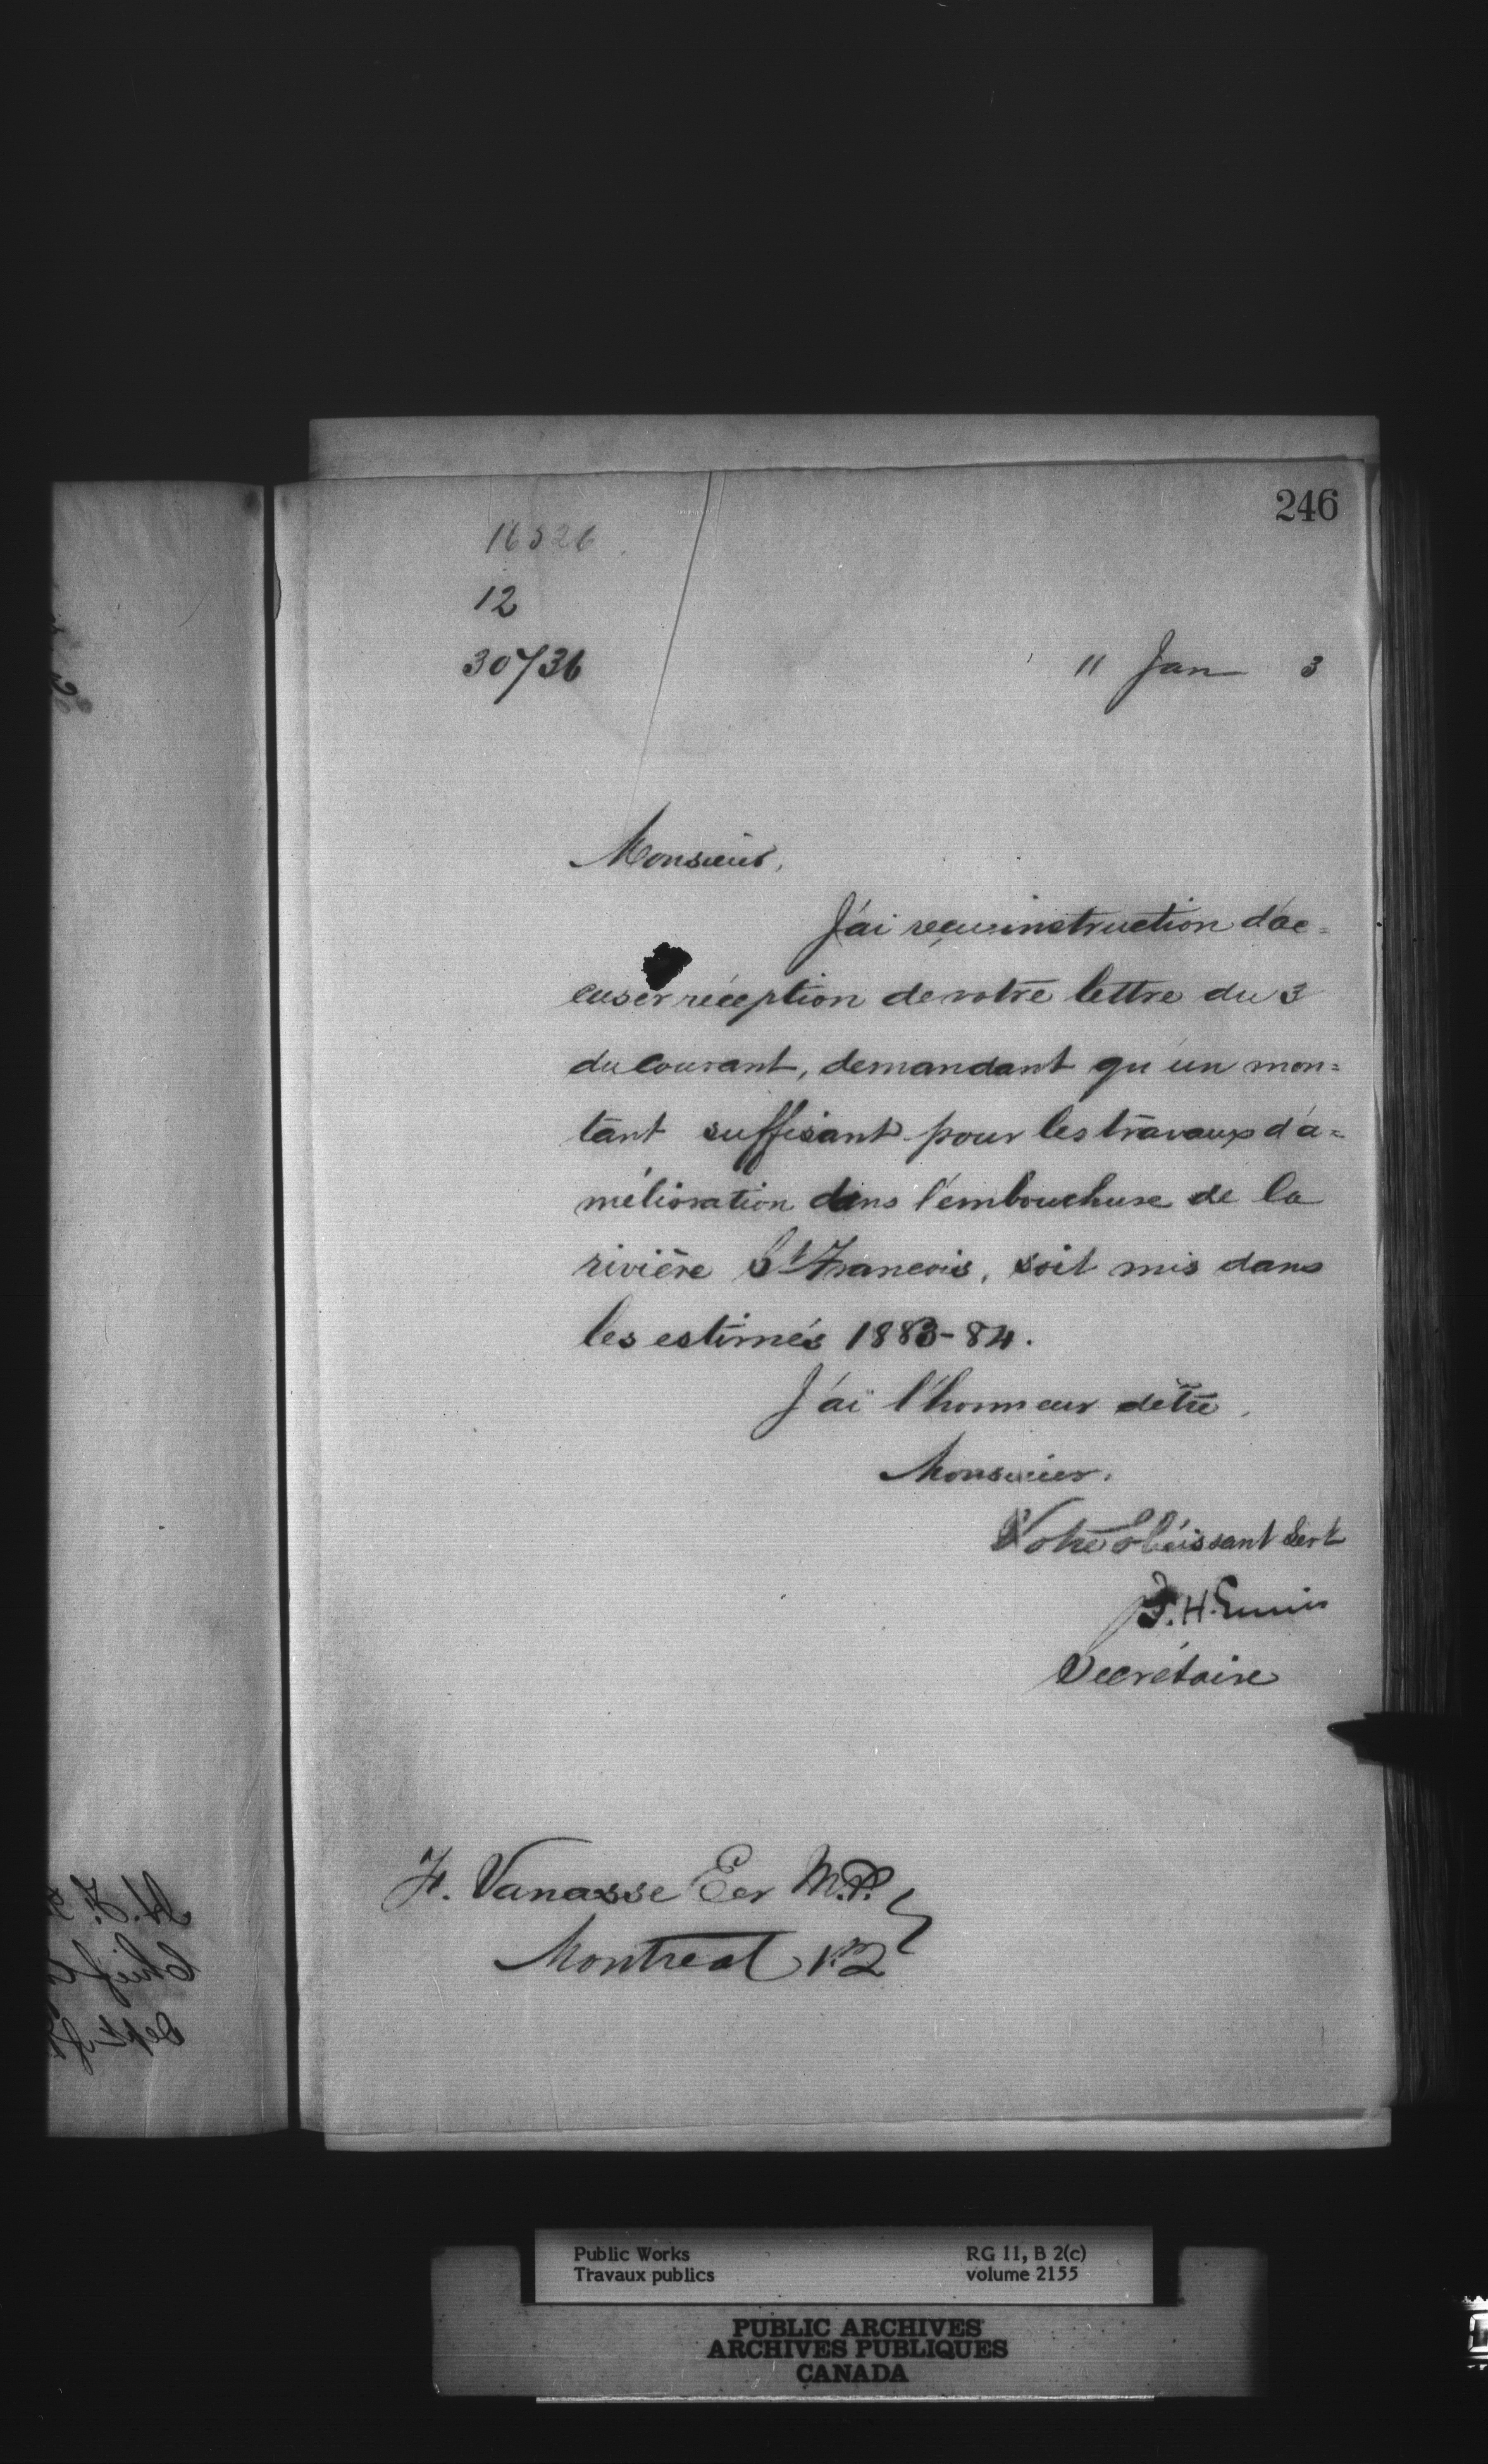 246
16526
12
30736
11 Jan 3
Monsieur,
J'ai reçu instruction d'ac=
cuser réception de votre lettre du 3
du courant, demandant qu'un mon=
tant suffisant pour les travaux d'a=
mélioration dans l'embouchure de la
rivière St Francois, soit mis dans
les estimés 1883-84.
J'ai l'honneur d'être,
Monsieur,
Votre obéissant Servt
F. H. Ennis
Secrétaire
F. Vanasse Ecr M.P.
Montreal P.Q
Public Works
Travaux publics
RG 11, B 2(c)
volume 2155
PUBLIC ARCHIVES
ARCHIVES PUBLIQUES
CANADA